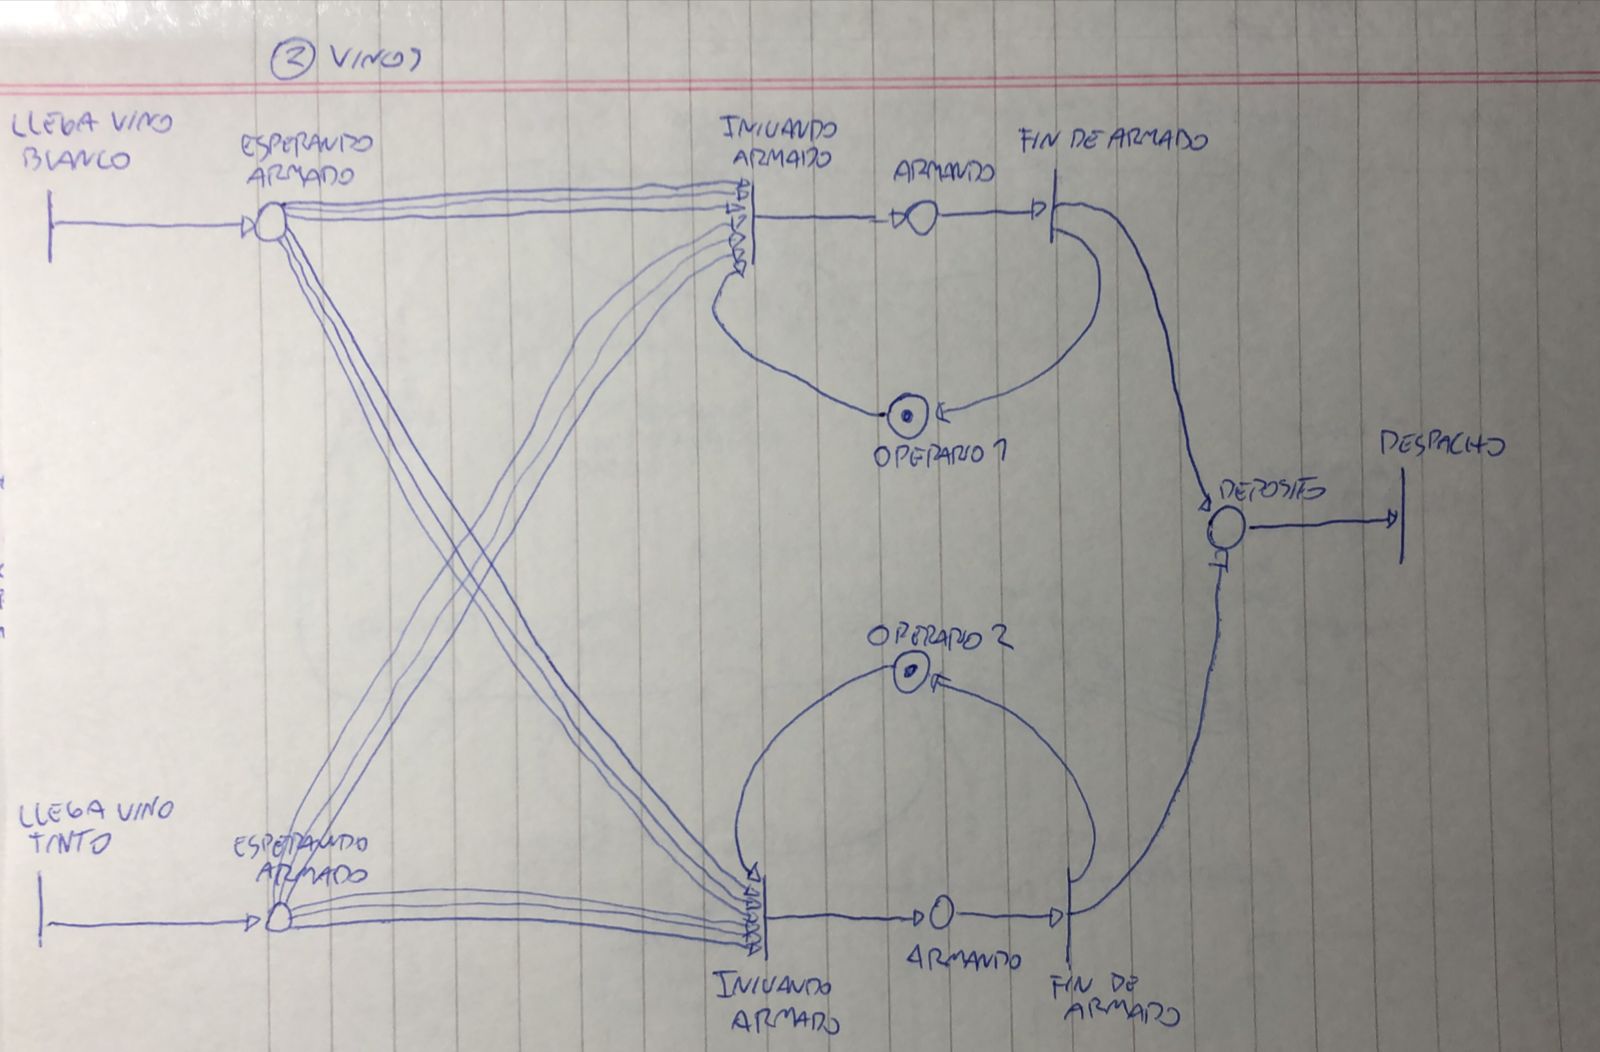 ② VINOS
LLEGA VINO
BLANCO
ESPERANDO
ARMADO
INICIANDO
ARMADO
ARMANDO
FIN DE ARMADO
OPERARIO 1
DESPACHO
DEPOSITO
OPERARIO 2
LLEGA VINO
TINTO
ESPERANDO
ARMADO
ARMANDO
INICIANDO
ARMADO
FIN DE
ARMADO